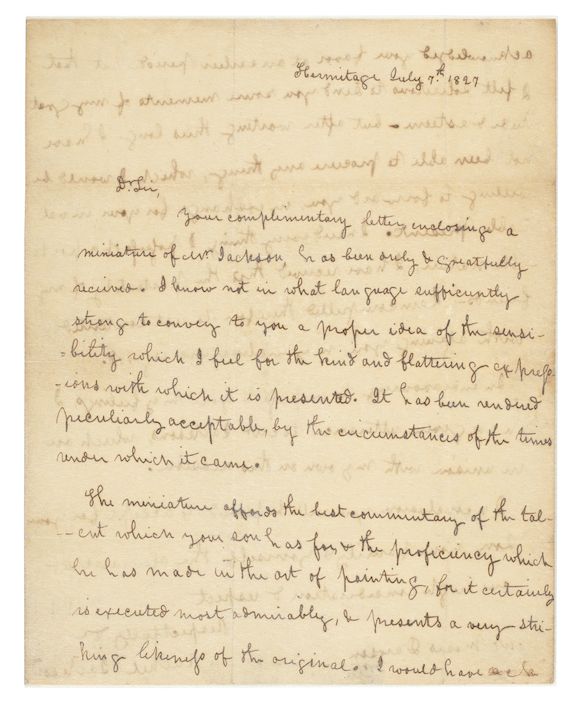 Hermitage July 7th 1827
Dr. Sir,
your complimentary letter, enclosing a
miniature of Mr Jackson, has been duly & greatfully
received. I know not in what language sufficiently
strong to convey to you a proper idea of the sensi-
-bility which I feel for the kind and flattering express-
-ions with which it is presented. It has been rendered
peculiarly acceptable, by the circumstances of the times
under which it came.
The miniature affords the best commentary of the tal-
-ent which your son has for & the proficiency which
he has made in the art of painting, for it certainly
is executed most admirably, & presents a very stri-
king likeness of the original. I would have ack